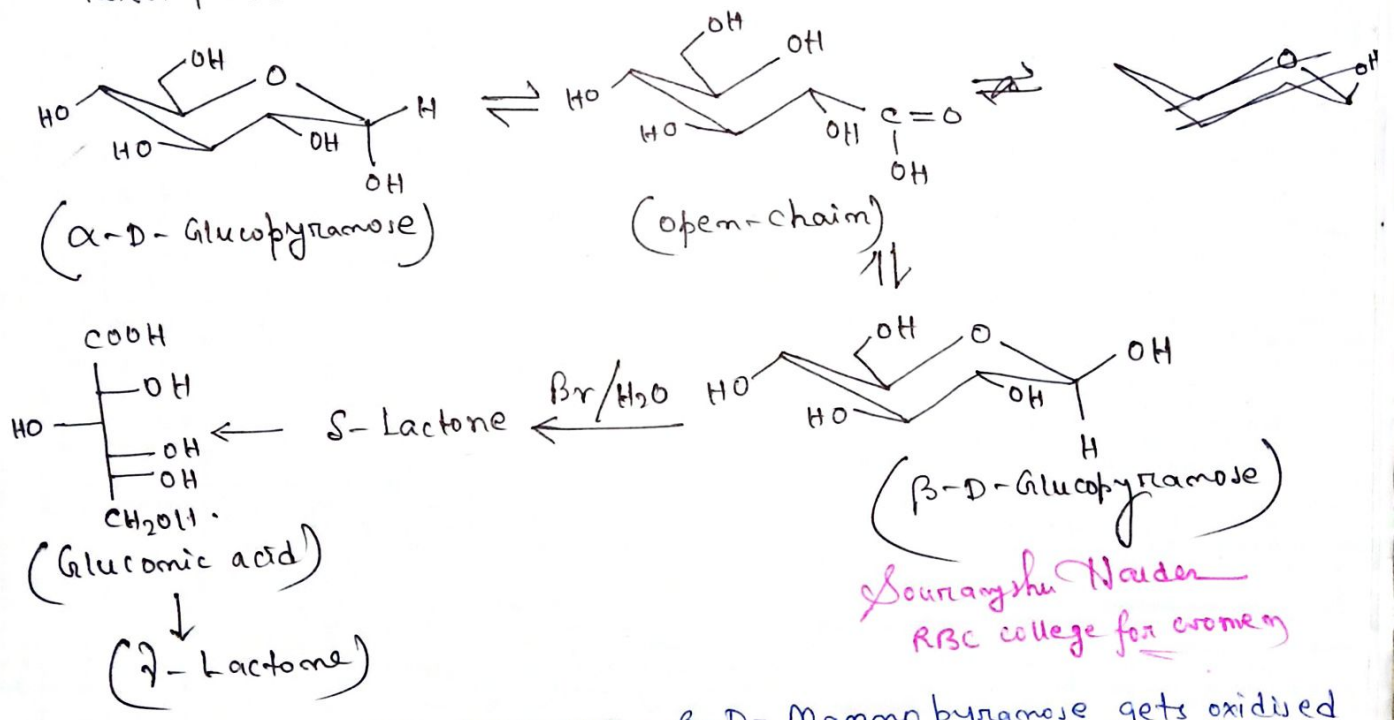 OH
O
H
HO
HO
OH
OH
(α-D-Glucopyranose)
⇌
OH
OH
HO
HO
OH
C=O
OH
(open-chain)
⇌
O
OH
⇌
OH
O
OH
HO
HO
OH
H
(β-D-Glucopyranose)
Br/H2O
←
δ-Lactone
←
COOH
OH
HO
OH
OH
CH2OH.
(Gluconic acid)
↓
(γ-Lactone)
RBC college for women
β-D-Mannopyranose gets oxidised